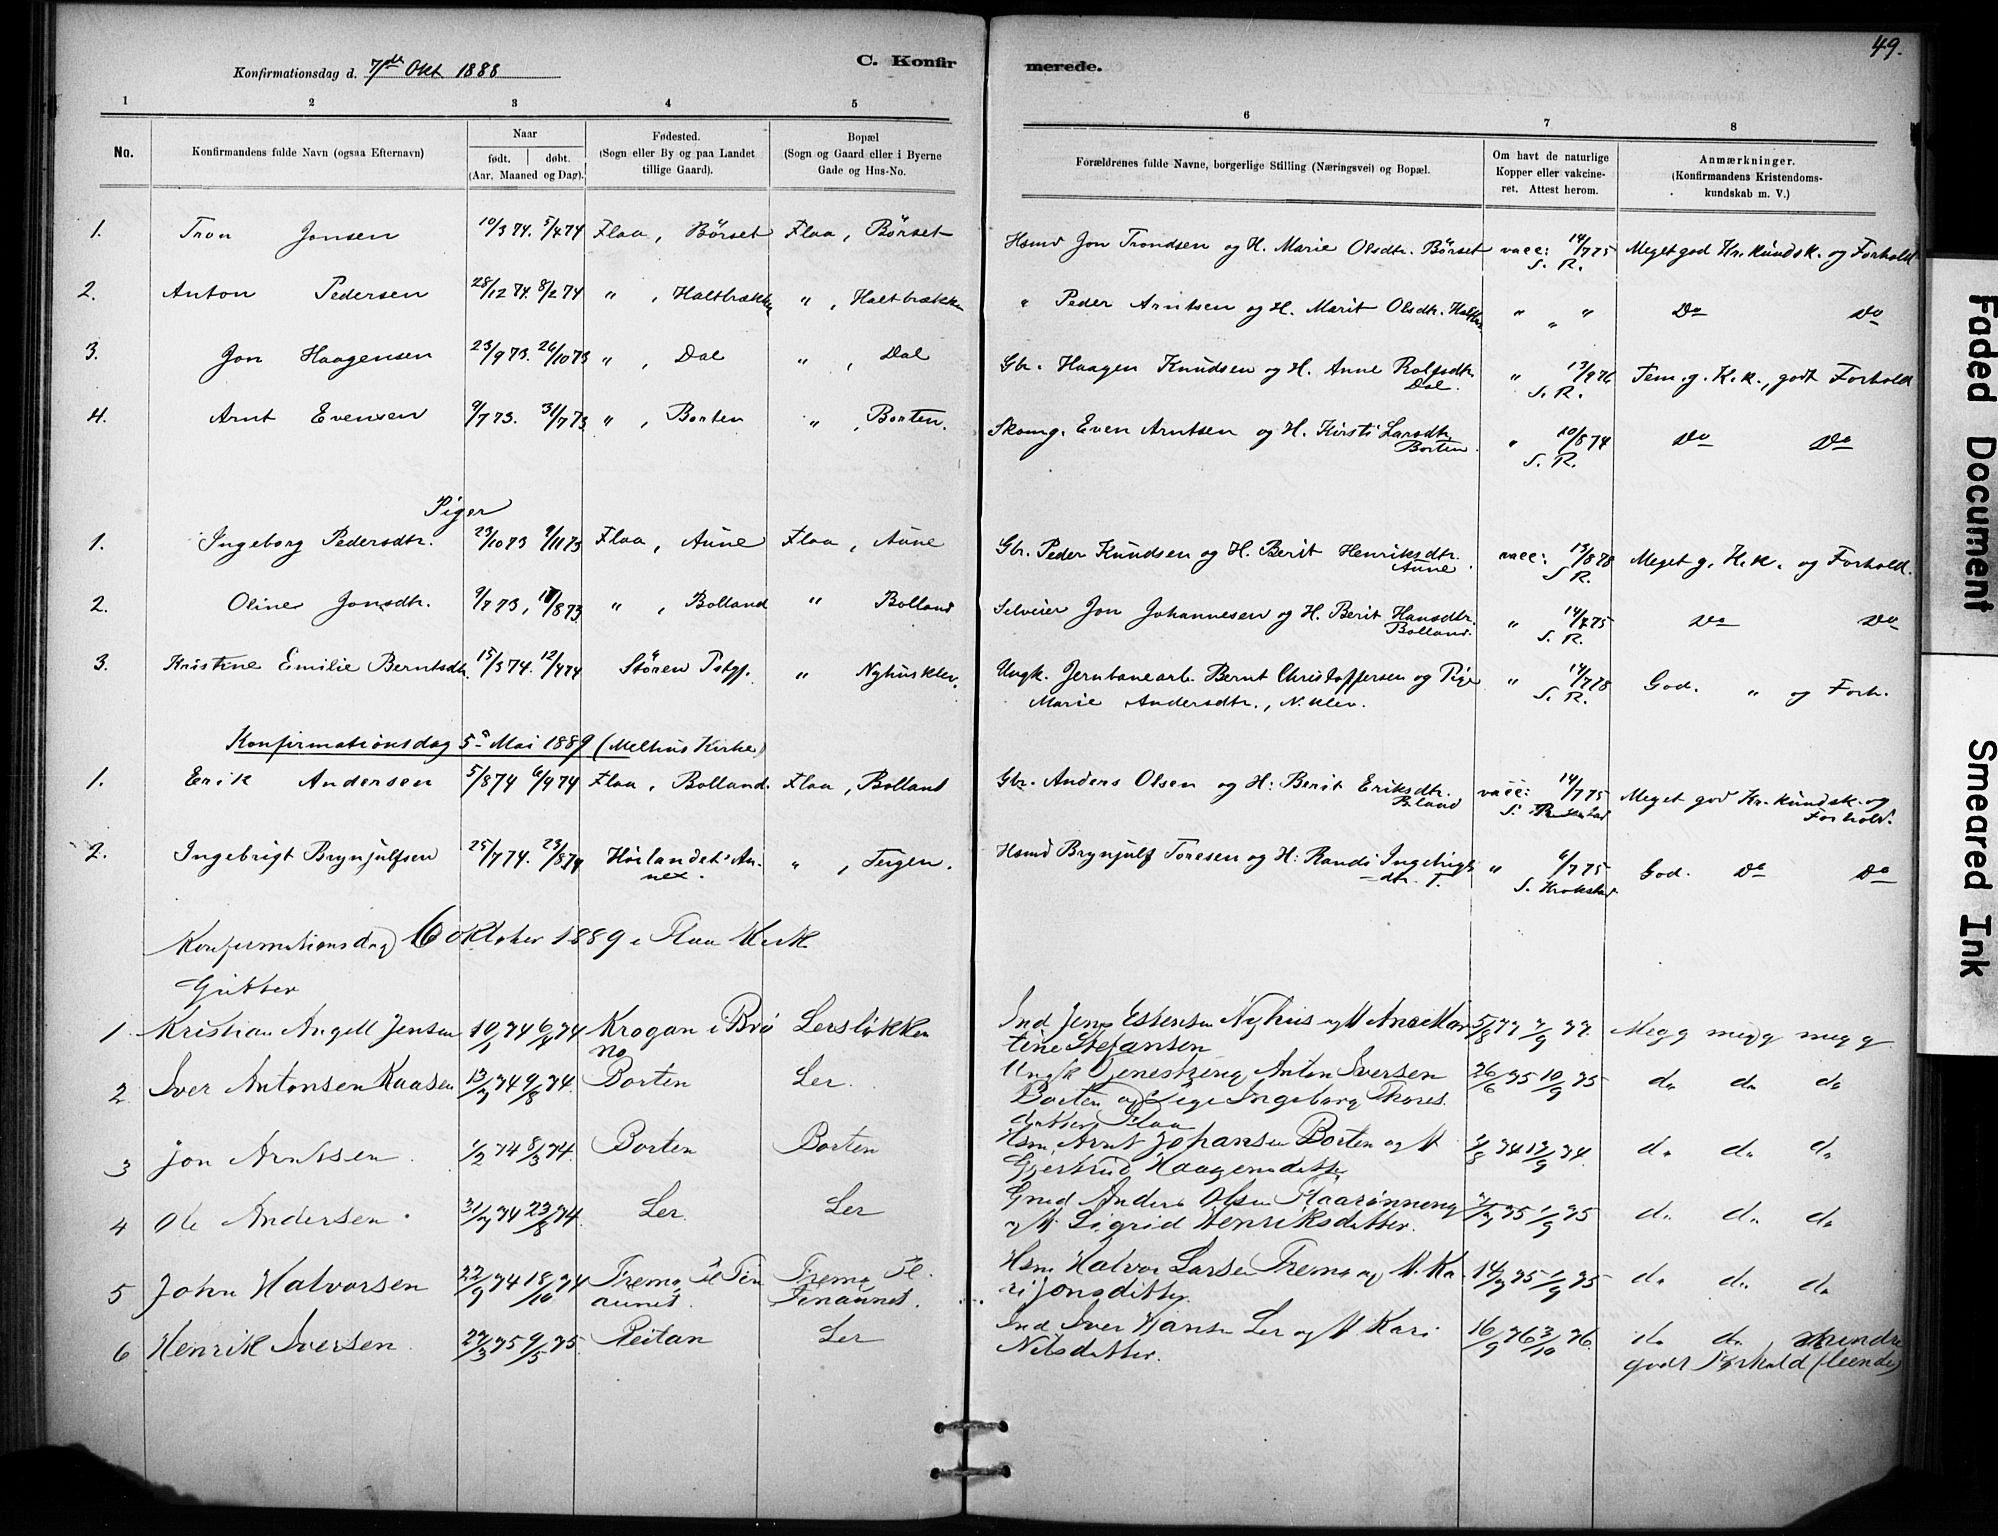 49.
Konfirmationsdag d. 7de Okt 1888
C. Konfirmerede.
1 2 3 4 5 6 7 8
No.
Konfirmandens fulde Navn (ogsaa Efternavn)
Naar
født. | døbt.
(Aar, Maaned og Dag).
Fødested.
(Sogn eller By og paa Landet
tillige Gaard).
Bopæl
(Sogn og Gaard eller i Byerne
Gade og Hus-No.
Forældrenes fulde Navne, borgerlige Stilling (Næringsvei) og Bopæl.
Om havt de naturlige
Kopper eller vakcine-
ret. Attest herom.
Anmærkninger.
(Konfirmandens Kristendoms-
kundskab m. V.)
1. Tron Jonsen 10/3 74. 5/4 74 Flaa, Börset Flaa, Börset Hsmd Jon Trondsen og H. Marie Olsdtr. Börset vacc: 14/7 75 Meget god Kr. kundsk. og Forhold
S. R.
2. Anton Pedersen 28/12 74. 8/2 74 " , Haltbrækken " , Haltbrækken " Peder Arntsen og H. Marit Olsdtr. " " " Do Do
3. Jon Haagensen 23/9 73. 26/10 73 " , Dal " , Dal Gbr. Haagen Knudsen og H. Anne Rolfsdtr. " 13/9 76 Tem. g. K.k., godt Forhold
Dal. S. R.
4. Arnt Evensen 9/7 73. 31/7 73 " , Borten " , Borten. Skomg. Even Arntsen og H. Kirsti Larsdtr. " 20/8 74 Do Do
Borten. S. R.
Piger
1. Ingeborg Pedersdtr. 29/10 73 9/11 73 Flaa, Aune Flaa, Aune Gbr. Peder Knudsen og H. Berit Henriksdtr. vacc: 13/8 78 Meget g. K.k. og Forhold.
Aune S. R.
2. Oline Jonsdtr. 9/7 73, 17/8 73 " , Bolland " Bolland Selveier Jon Johannesen og H. Berit Hansdtr. " 14/7 75 Do Do
Bolland. S. R.
3. Kristine Emilie Berntsdtr. 15/3 74. 12/4 74 Stören Pstgj. " Nyhusklev. Ungk. Jernbanearb. Bernt Christoffersen og Pige " 14/7 78 God. " og Forh.
Marie Andersdtr., N. klev. S. R.
Konfirmationsdag 5te Mai 1889 (Melhus Kirke)
1. Erik Andersen 5/8 74 6/9 74 Flaa, Bolland. Flaa, Bolland Gbr. Anders Olsen og H: Berit Eriksdtr. vacc: 14/7 75 Meget god Kr. kundsk. og
Bland S. Forhold.
2. Ingebrigt Brynjulfsen 25/7 74. 23/8 74 Hölandet: An- " , Teigen. Hsmd Brynjulf Toresen og H: Randi Ingebrigt- " 6/7 75 God. Do Do
nex. dtr. T. S. Krokstad
Konfirmationsdag 6 Oktober 1889 i Flaa Kirk
Gutter
1 Kristian Angell Jensen 10/1 74 6/4 74 Krogan i Brö Lersløkken Ind Jens Estensen Nyhus og H Ane Mar 5/8 77 7/9 77. Meg g meg g meg g
no tine Stefansen
2 Iver Antonsen Kaasen 13/7 74 9/8 74. Borten Ler. Ungk Tjenestreng Anton Iversen 26/6 75 10/9 75 do do do
Borten og Pige Ingeborg Thores
datter Flaa
3 Jon Arntsen 1/2 74 8/3 74. Borten Borten Hsm Arnt Johansen Borten og H 74 17/9 74. do do do
Gjertrud Haagensdatter
4 Ole Andersen 31/7 74 23/8 74. Ler. Ler Gmd Anders Olsen Flaarønneng 75 1/9 75 do do do
og H. Sigrid Henriksdatter.
5 John Halvorsen 22/9 74 18/10 74 Fremo Fl. Hsm Halvor Larsen Fremo og H. Ka- 14/7 75 1/9 75 do do do
ri Jonsdatter
6 Henrik Iversen 27/3 75 9/5 75. Reitan Ler Ind Iver Hansen Ler og H Kari 16/9 76 3/10 76. do do mindre
Nilsdatter. godt Forhold
Faded Document
Smeared Ink